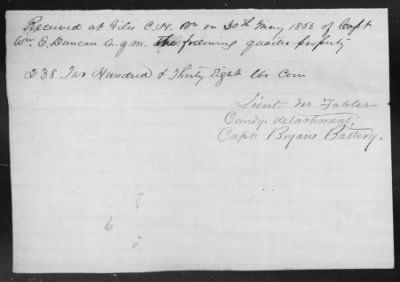 Received at Giles C. H. Va on 30th May 1862 of Capt
Wm E. Duncan a. q. m. The following quarters property
238 Two Hundred & Thirty Eight lbs Corn
Lieut M Fabler
Comdg detachment,
Capt. Bryans Battery.